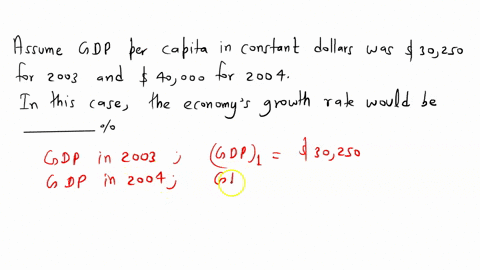 Assume GDP per capita in constant dollars was $30,250
for 2003 and $40,000 for 2004.
In this case, the economy's growth rate would be
______ %
GDP in 2003 ; (GDP)1 = $30,250
GDP in 2004 ; G